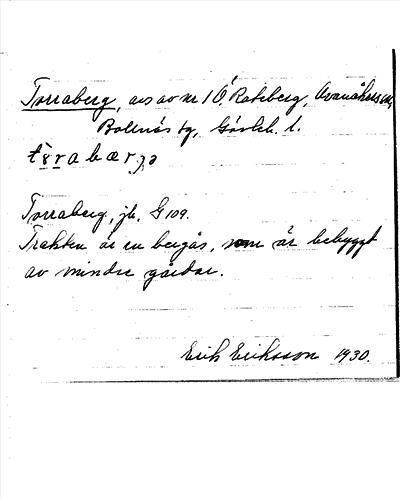 Torraberg, avs av nr 1 Ö. Roteberg, Ovanåkers sn,
Bollnäs tg, Gävleb. l.
Torraberg, jb. G 109.
Trakten är en bergås, som är bebyggt
av mindre gårdar.
Erik Eriksson 1930.